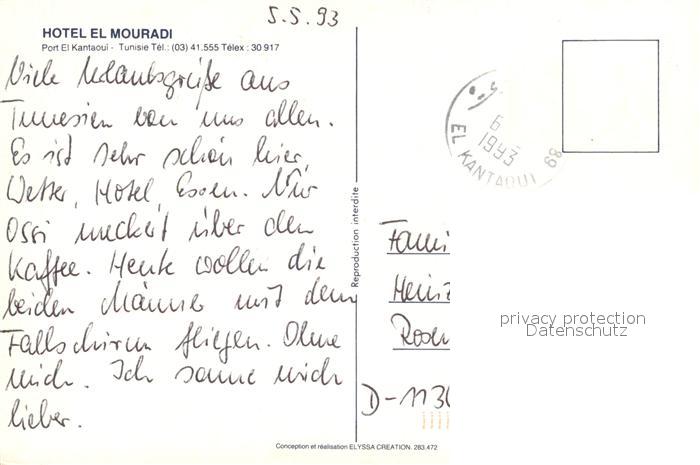 5.5.93
HOTEL EL MOURADI
Port El Kantaoui - Tunisie Tél.: (03) 41.555 Télex : 30 917
Viele Urlaubsgrüße aus
Tunesien von uns allen.
Es ist sehr schön hier,
Wetter, Hotel, Essen. Nur
Ossi meckert über den
Kaffee. Heute wollen die
beiden Männer mit dem
Fallschirm fliegen. Ohne
mich. Ich sonne mich
lieber.
Reproduction interdite
6
1993
EL KANTAOUI 89
Fami
Heinz
Rosen
D-113
privacy protection
Datenschutz
Conception et réalisation ELYSSA CREATION. 283.472